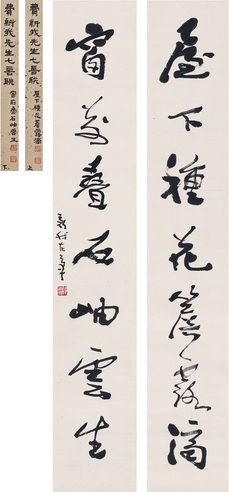 屋下種花簷露滴
窗前叠石岫雲生
新我左筆
費新我先生七言聯
屋下種花簷露滴
上
費新我先生七言聯
窗前叠石岫雲生
下